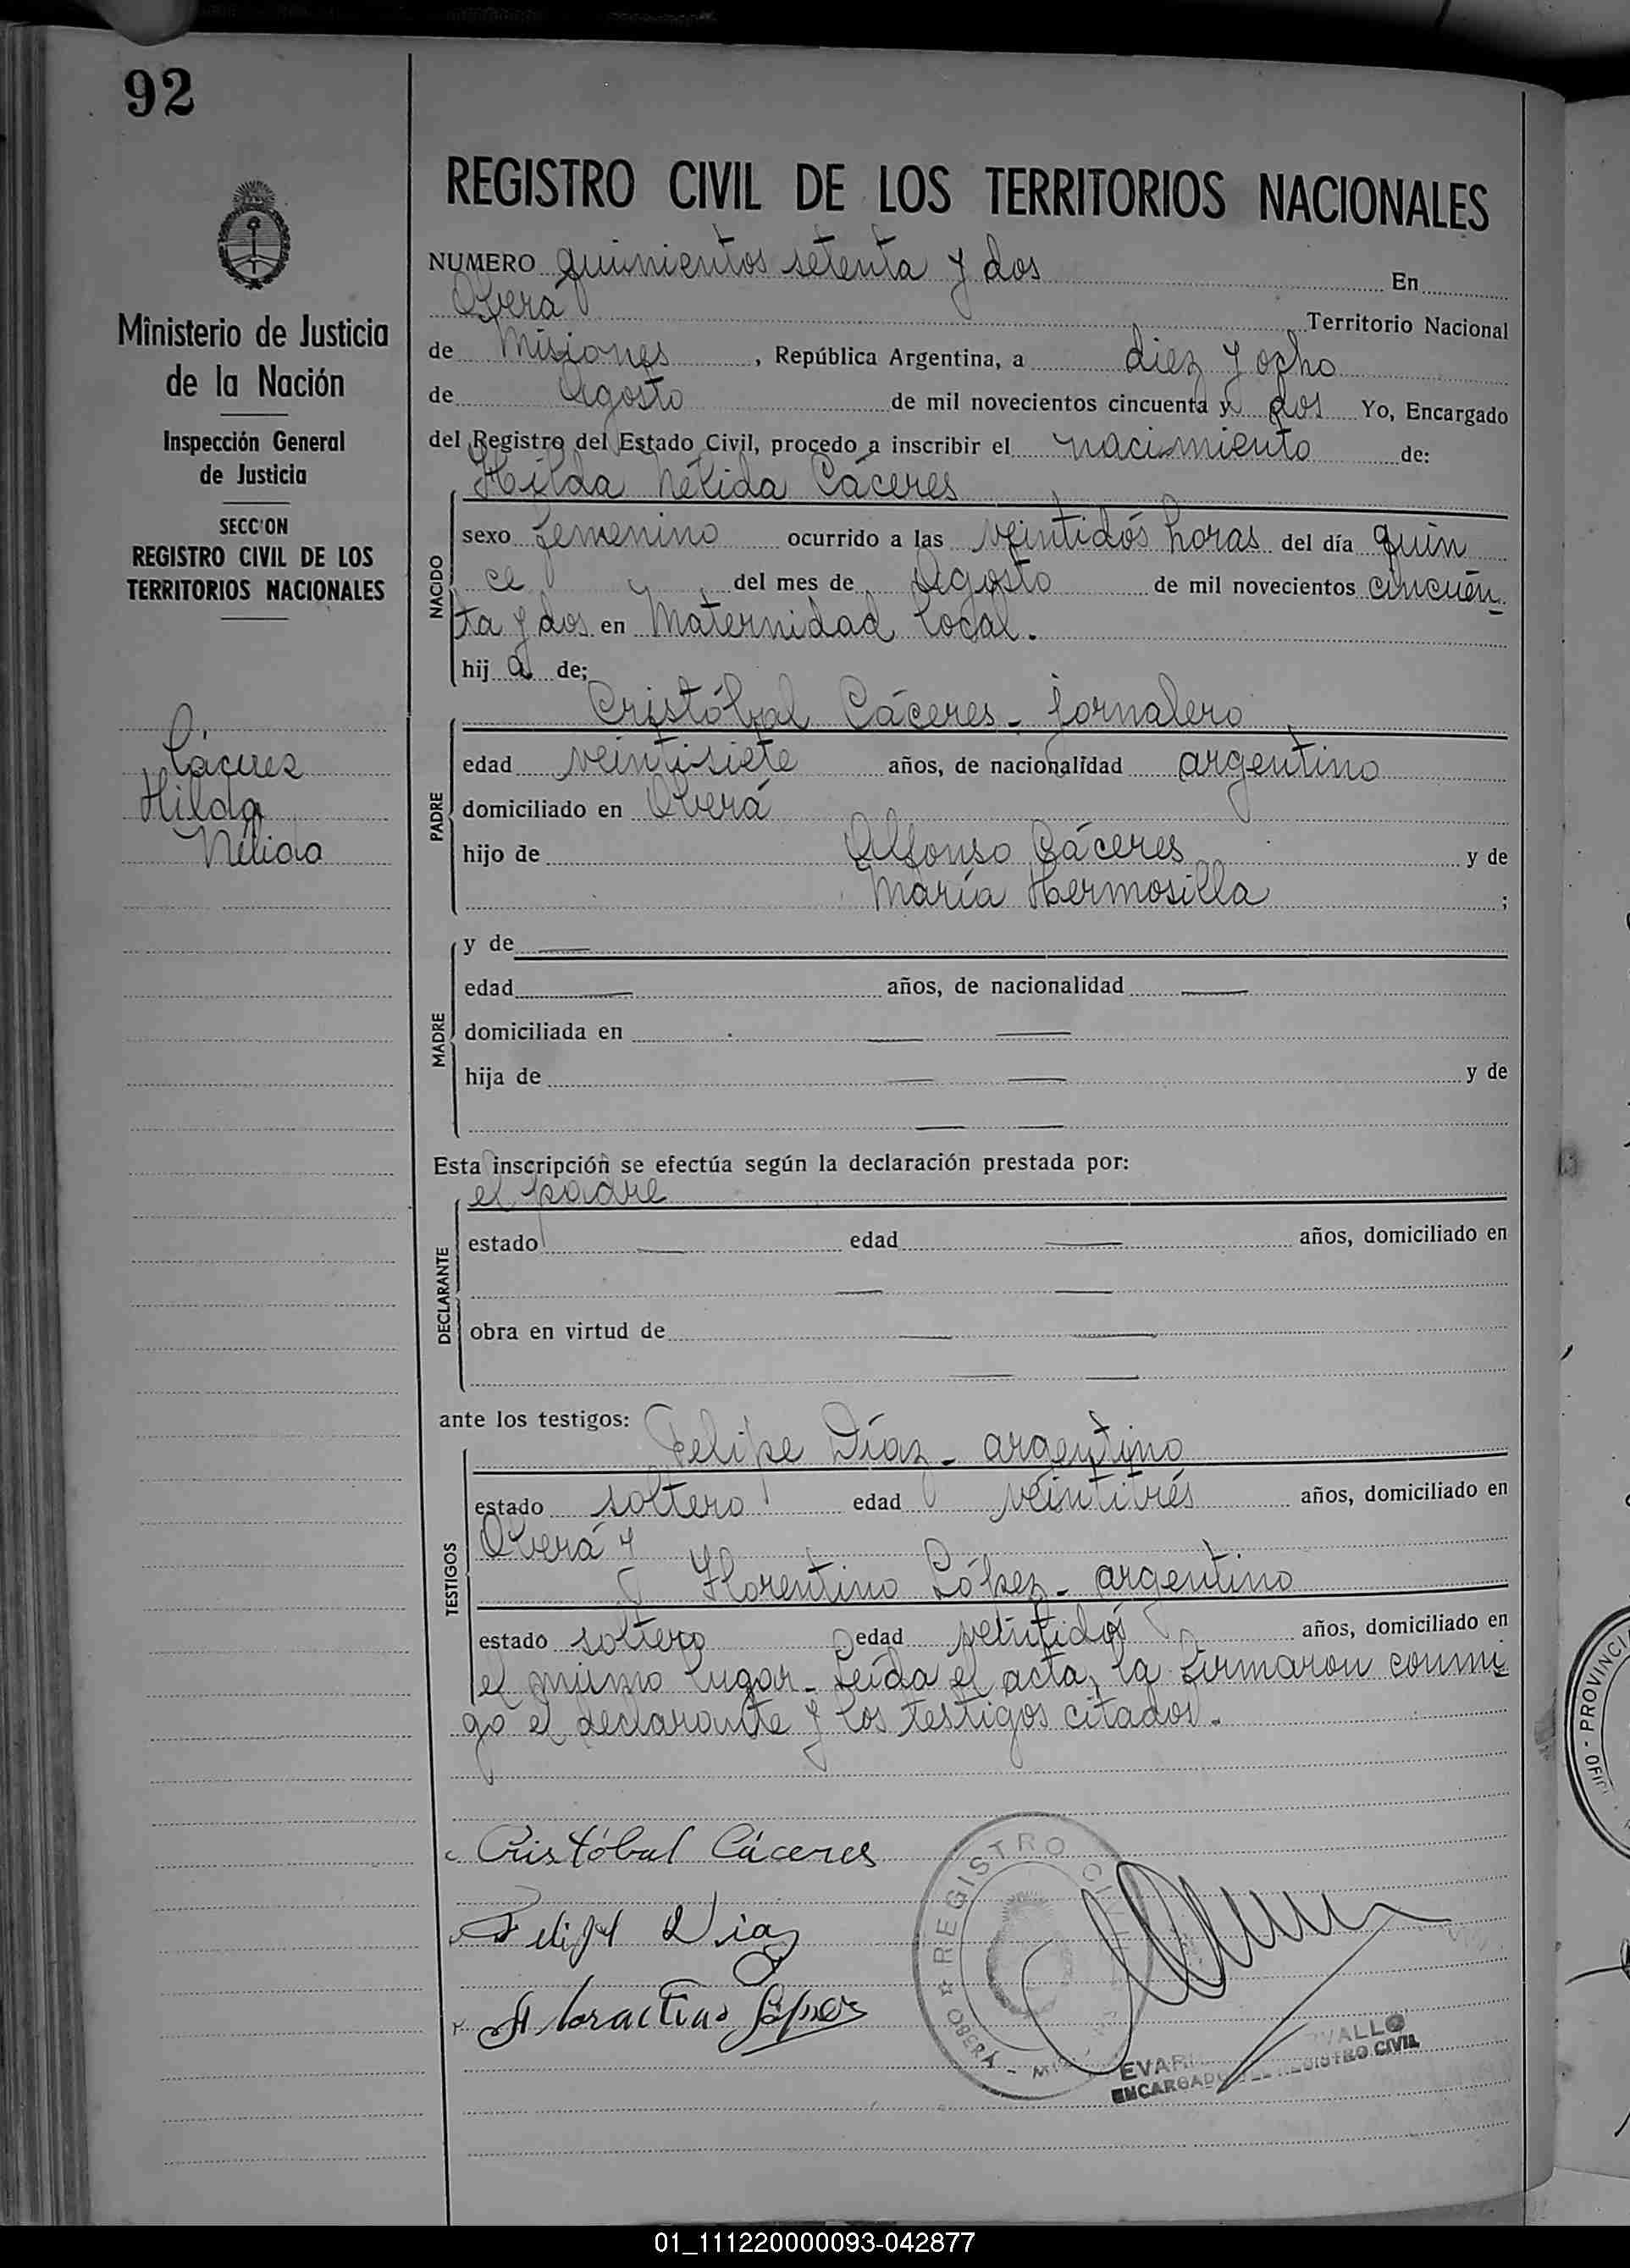 92
REGISTRO CIVIL DE LOS TERRITORIOS NACIONALES
Ministerio de Justicia
de la Nación
Inspección General
de Justicia
SECCION
REGISTRO CIVIL DE LOS
TERRITORIOS NACIONALES
Cáceres
Hilda
Nélida
NUMERO quinientos setenta y dos En
Oberá Territorio Nacional
de Misiones, República Argentina, a diez y ocho
de Agosto de mil novecientos cincuenta y dos Yo, Encargado
del Registro del Estado Civil, procedo a inscribir el nacimiento de:
Hilda Nélida Cáceres
NACIDO
sexo femenino ocurrido a las veintidós horas del día quin
ce del mes de Agosto de mil novecientos cincuen-
ta y dos en Maternidad local.
hija de;
PADRE
Cristóbal Cáceres - jornalero
edad veintisiete años, de nacionalidad argentino
domiciliado en Oberá
hijo de Alfonso Cáceres y de
María Hermosilla ;
MADRE
y de —
edad — años, de nacionalidad —
domiciliada en — —
hija de — — y de
— —
Esta inscripción se efectúa según la declaración prestada por:
el padre
DECLARANTE
estado — edad — años, domiciliado en
— —
obra en virtud de — —
— —
ante los testigos:
TESTIGOS
Felipe Díaz - argentino
estado soltero edad veintitrés años, domiciliado en
Oberá y
Florentino López - argentino
estado soltero edad veintidós años, domiciliado en
el mismo lugar - Leída el acta, la firmaron conmi
go el declarante y los testigos citados.
Cristóbal Cáceres
Felipe Diaz
López
REGISTRO CIVIL
OBERÁ
ENCARGADO DEL REGISTRO CIVIL
PROVINCI
01_111220000093-042877